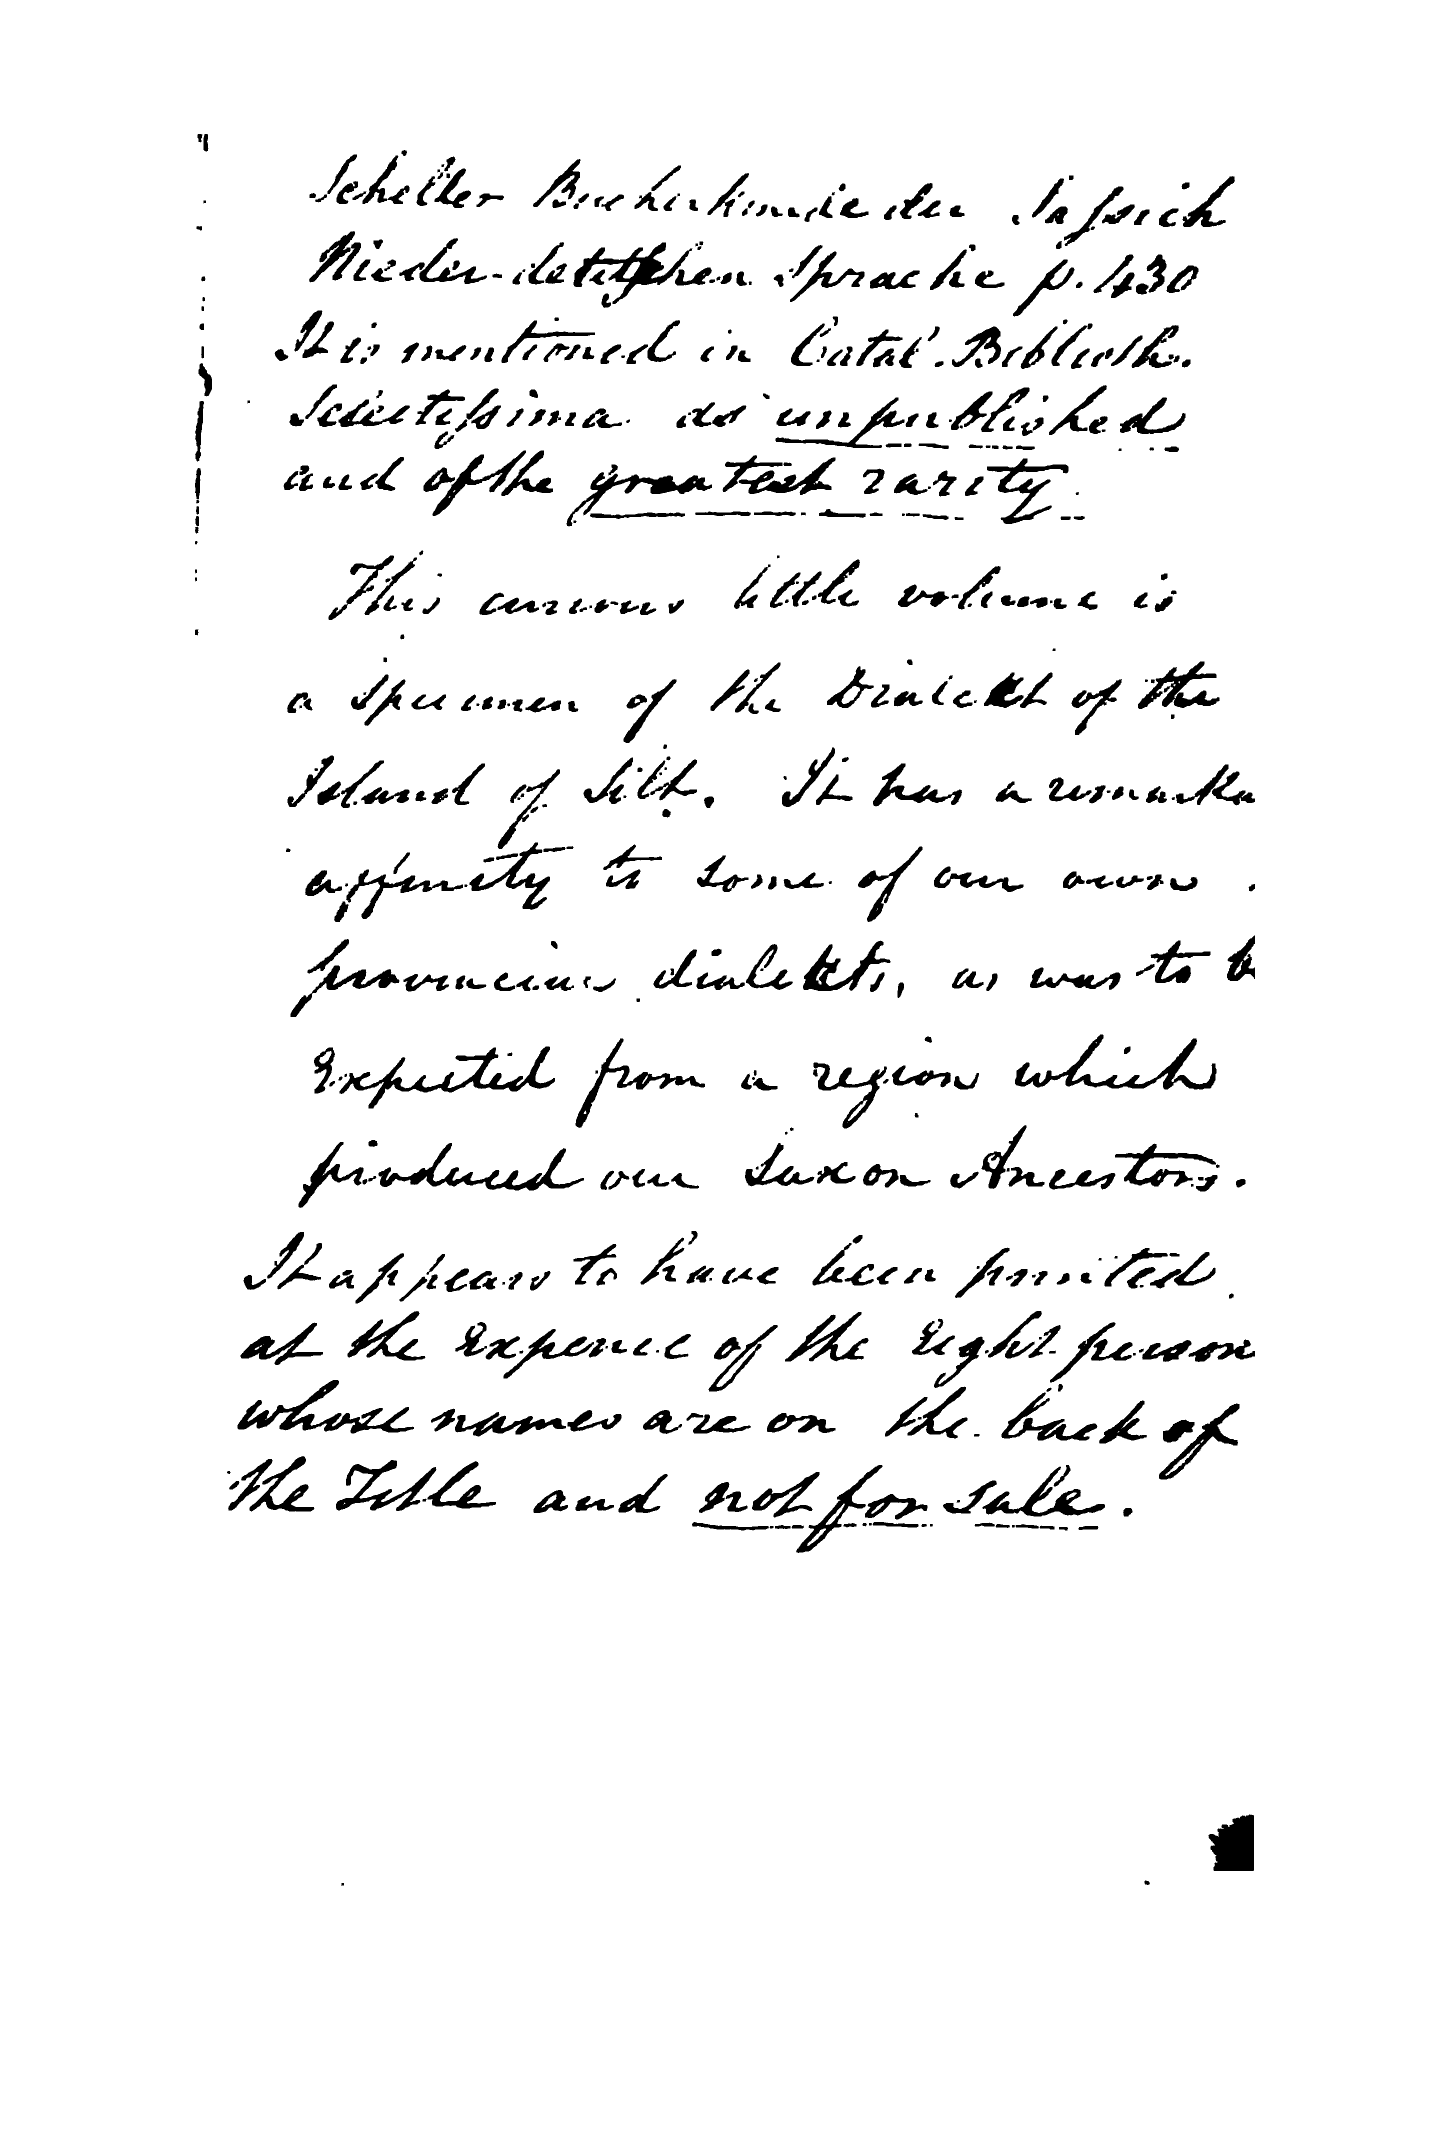 Scheller Bucherkunde der Sassich
Nieder-deutschen Sprache p. 430
It is mentioned in Catal. Biblioth.
Selectissima as unpublished
and of the greatest rarity.
This curious little volume is
a specimen of the Dialect of the
Island of Silt. It has a remarka
affinity to some of our own
provincial dialects, as was to b
Expected from a region which
produced our Saxon Ancestors.
It appears to have been printed
at the Expence of the Eight person
whose names are on the back of
the Title and not for sale.